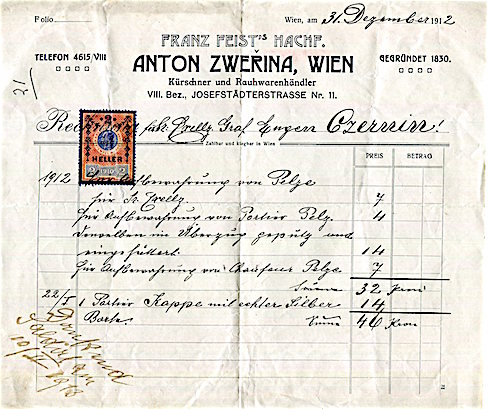 Folio
Wien, am 31. Dezember 1912
FRANZ FEIST'S NACHF.
TELEFON 4615/VIII
ANTON ZWEŘINA, WIEN
GEGRÜNDET 1830.
Kürschner und Rauhwarenhändler
VIII. Bez., JOSEFSTÄDTERSTRASSE Nr. 11.
21/
für Graf Eugen Czernin!
Zahlbar und klagbar in Wien
PREIS BETRAG
2
HELLER
2 1910 2
1912 für Aufbewahrung von Pelze
für Sr. Exellz. 7
für Aufbewahrung von Portier Pelz 4
denselben im Überzug geputzt und
eingefüttert. 14
für Aufbewahrung von Chauffeur Pelze 7
Summe 32 Kron
22/I 1 Portier Kappe mit echter Silber 14
Borte. Summe 46 Kron
Dankend